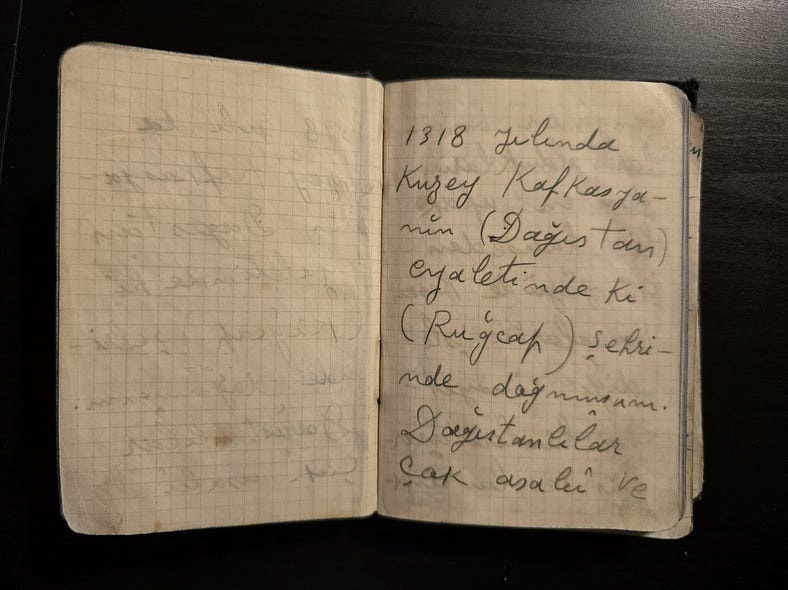 1318 yılında
Kuzey Kafkasya-
nın (Dağıstan)
eyaletinde ki
(Ruğcap) şehri-
nde doğmuşum.
Dağıstanlılar
Çok asalî ve